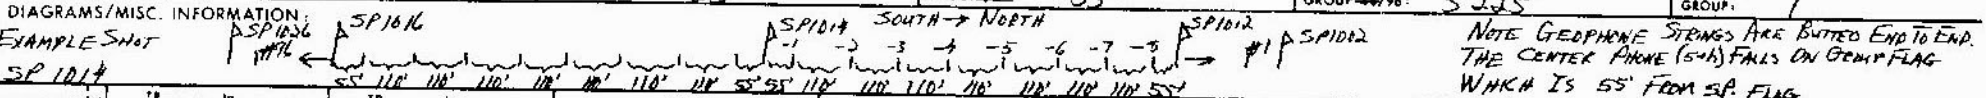 DIAGRAMS/MISC. INFORMATION:
EXAMPLE SHOT
SP 1014
SP1026
#96
SP1016
SP1014
SOUTH → NORTH
SP1012
#1
SP1002
-1 -2 -3 -4 -5 -6 -7 -8
55' 110' 110' 110' 110' 110' 110' 110' 55' 55' 110' 110' 110' 110' 110' 110' 110' 55'
NOTE GEOPHONE STRINGS ARE BUTTED END TO END.
THE CENTER PHONE (5th) FALLS ON GROUP FLAG
WHICH IS 55' FROM SP. FLAG
GROUP
GROUP: